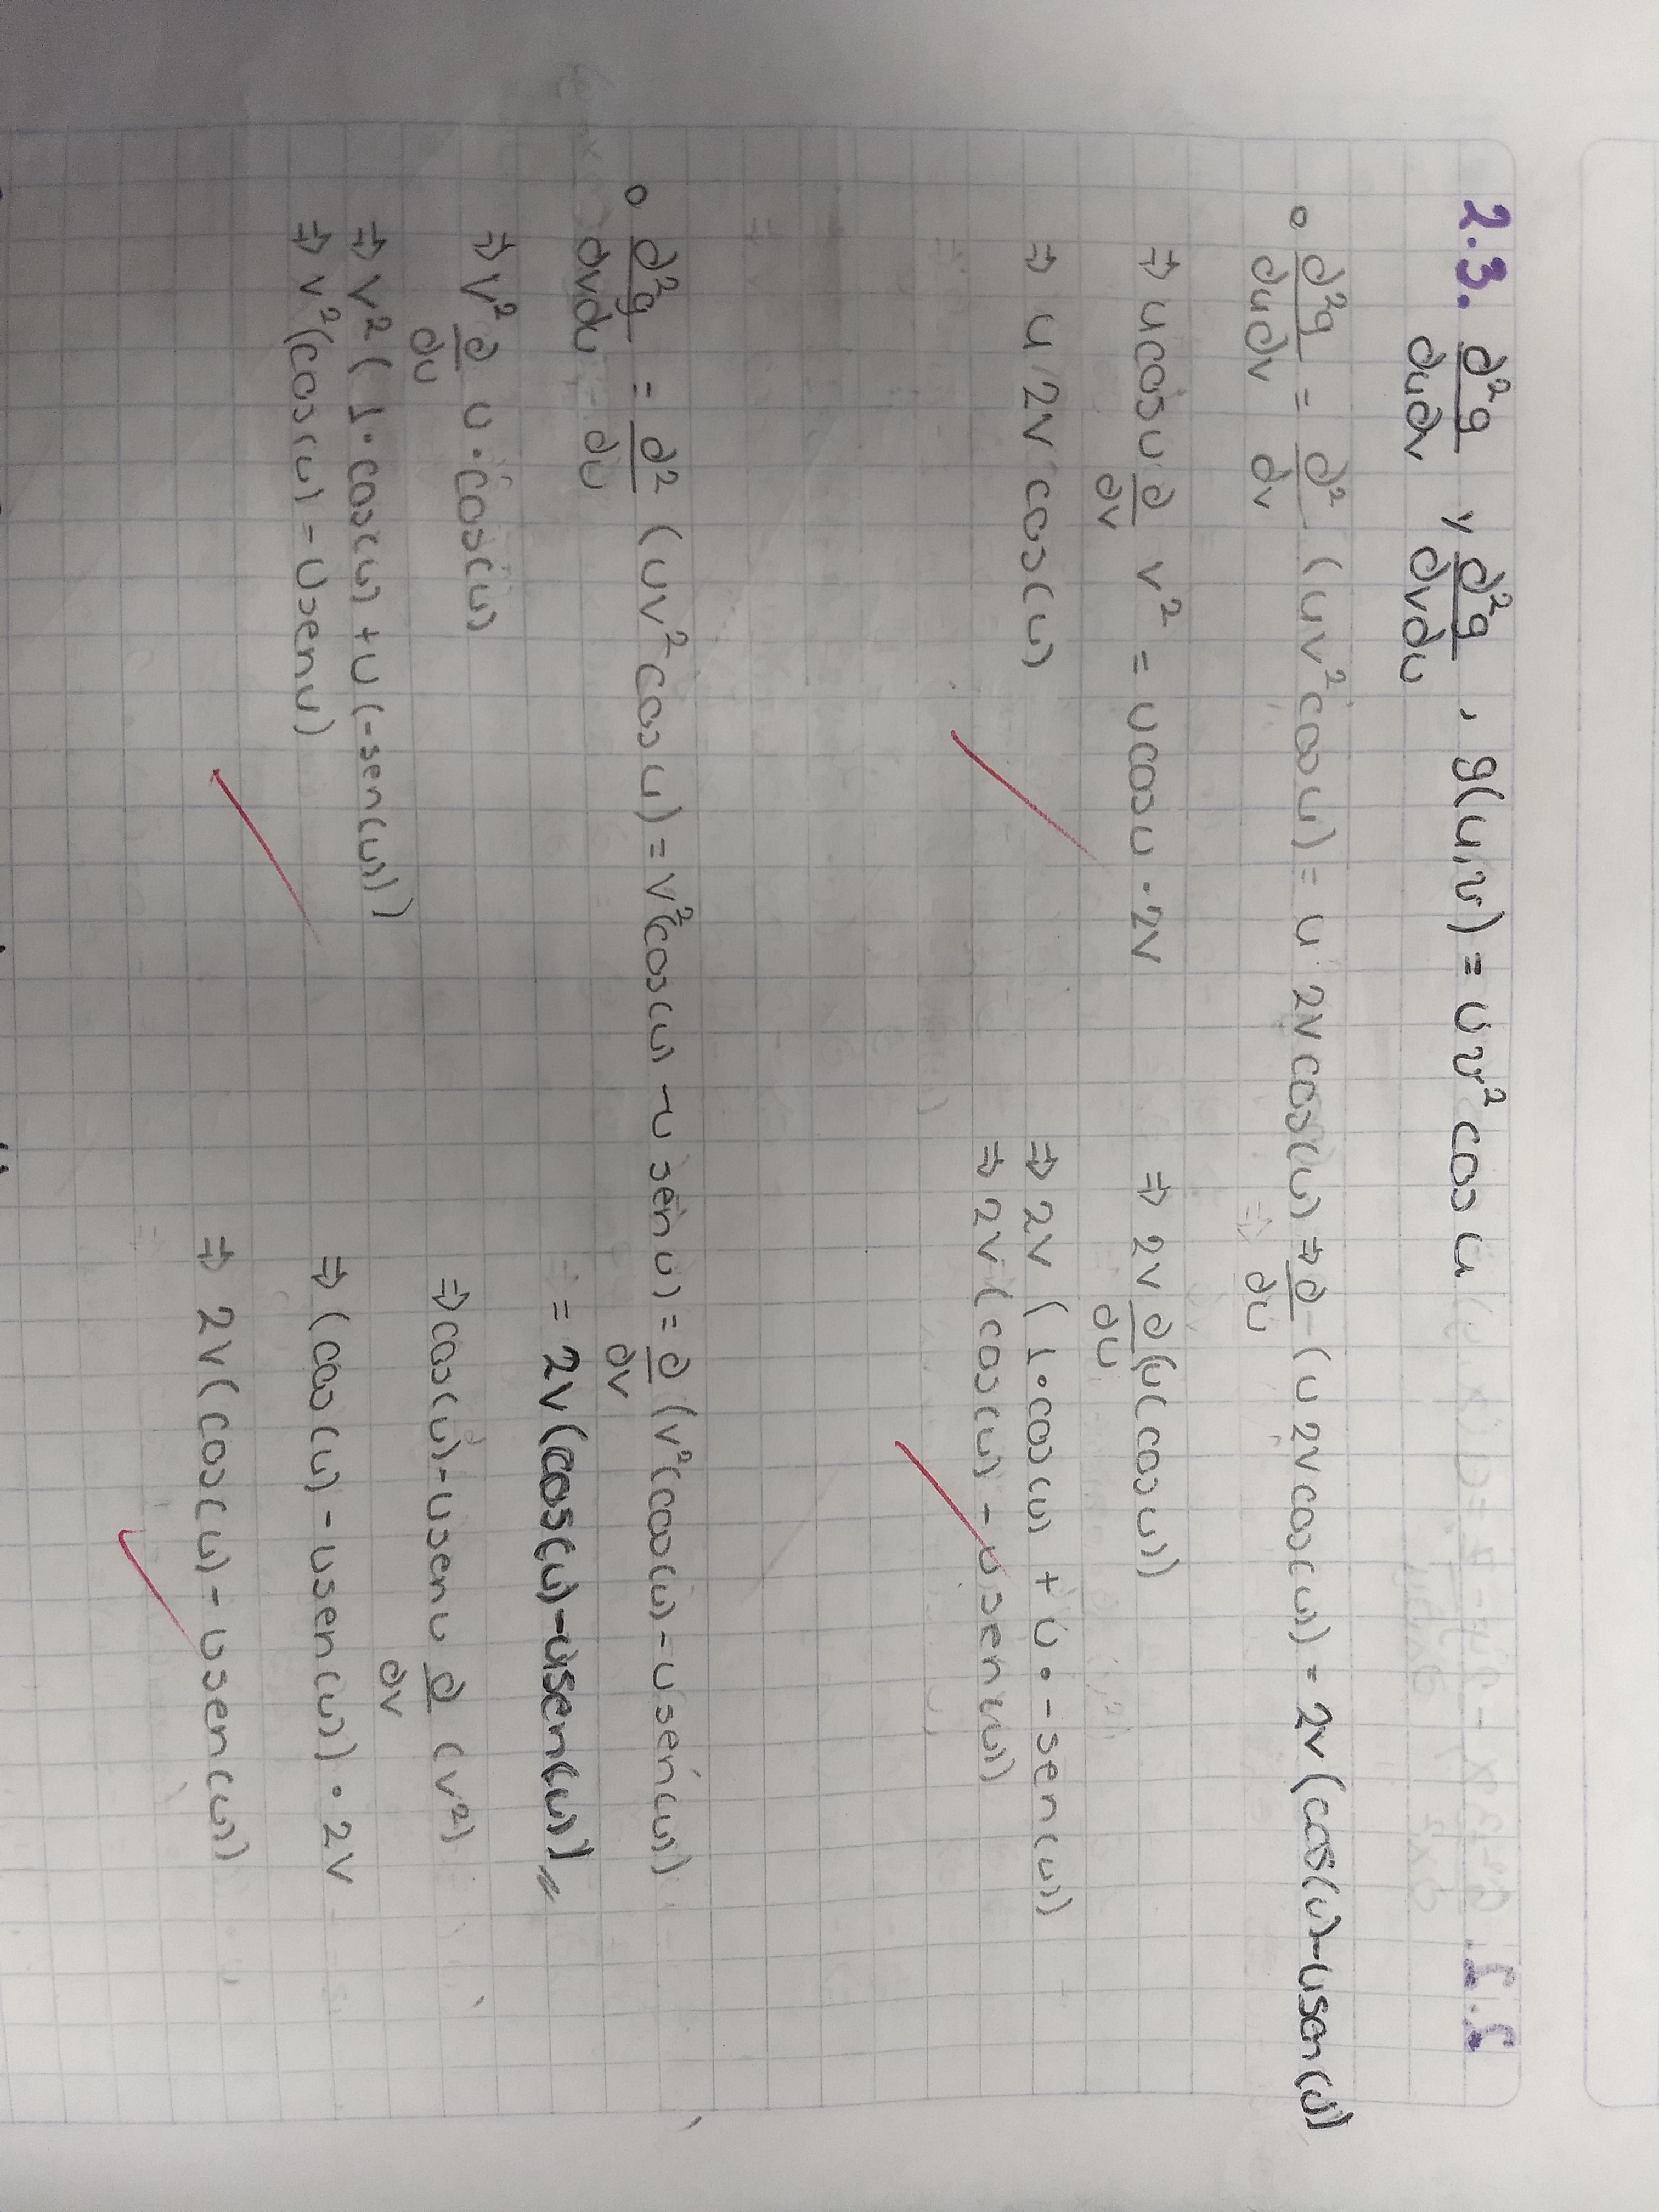 2.3. ∂²g/∂u∂v y ∂²g/∂v∂u , g(u,v) = uv² cos u
∂²g/∂u∂v = ∂²/∂v (uv²cos u) = u 2v cos(u) ⇒ ∂/∂u (u 2v cos(u)) = 2v (cos(u)-usen(u))
⇒ u cos u ∂/∂v v² = u cos u · 2v
⇒ u 2v cos(u)
⇒ 2v ∂/∂u (u(cos u))
⇒ 2v (1·cos(u) + u·-sen(u))
⇒ 2v (cos(u) - usen(u))
∂²g/∂v∂u = ∂²/∂u (uv²cos u) = v²(cos(u) -u sen u) = ∂/∂v (v²(cos(u)-usen(u))
= 2v(cos(u)-usen(u))
⇒ v² ∂/∂u u·cos(u)
⇒ v² (1·cos(u) +u(-sen(u)))
⇒ v²(cos(u) - usenu)
⇒ cos(u)-usenu ∂/∂v (v²)
⇒ (cos(u) - usen(u)) · 2v
⇒ 2v(cos(u) - usen(u))